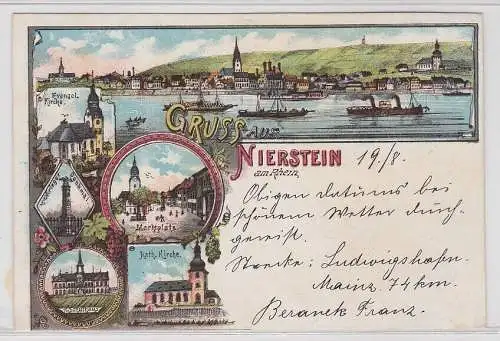 Evangel.
Kirche.
GRUSS AUS
NIERSTEIN
am Rhein.
19/8.
Marktplatz
Kath. Kirche.
Obigen datums bei
schönem Wetter durch-
gereist.
Strecke: Ludwigshafen-
Mainz 74 km.
Beranek Franz.